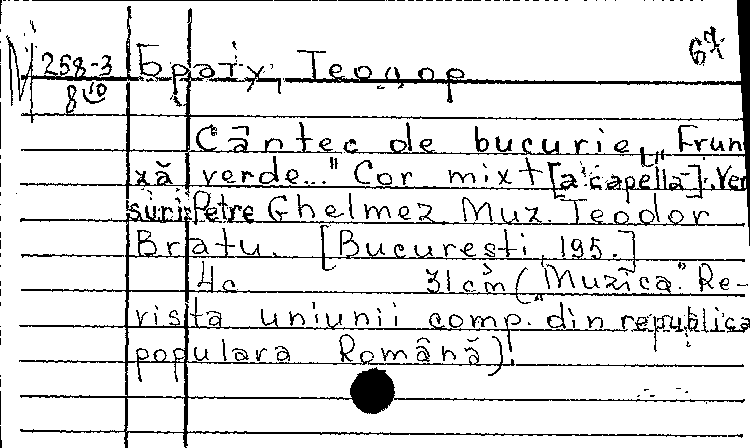 67
М 258-3 Брату, Теодор
8
Cântec de bucurie „Frun
ză verde..." Cor mixt [a capella]. Ver
suri: Petre Ghelmez Muz. Teodor
Bratu. [Bucuresti, 195.]
4c 31cm („Muzica." Re-
vista uniunii comp. din republica
populara Română).